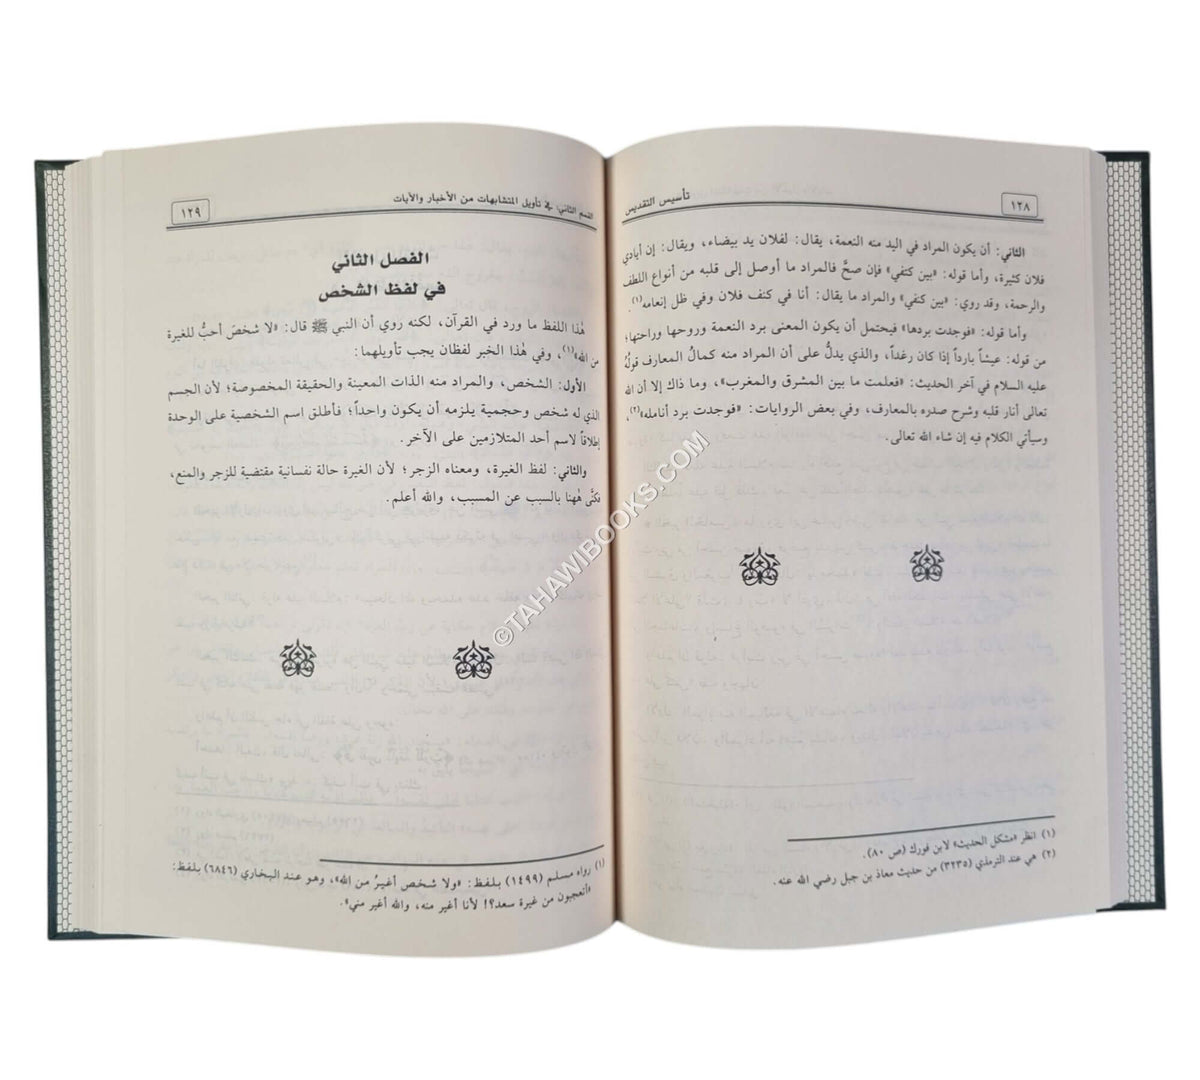 ١٢٨
تأسيس التقديس
الثاني: أن يكون المراد في اليد منه النعمة، يقال: لفلان يد بيضاء، ويقال: إن أيادي
فلان كثيرة، وأما قوله: «بين كتفي» فإن صحَّ فالمراد ما أوصل إلى قلبه من أنواع اللطف
والرحمة، وقد روي: «بين كنفي» والمراد ما يقال: أنا في كنف فلان وفي ظل إنعامه(١).
وأما قوله: «فوجدت بردها» فيحتمل أن يكون المعنى برد النعمة وروحها وراحتها؛
من قوله: عيشاً بارداً إذا كان رغداً، والذي يدلُّ على أن المراد منه كمالُ المعارف قولُهُ
عليه السلام في آخر الحديث: «فعلمت ما بين المشرق والمغرب»، وما ذاك إلا أن الله
تعالى أنار قلبه وشرح صدره بالمعارف، وفي بعض الروايات: «فوجدت برد أنامله»(٢)،
وسيأتي الكلام فيه إن شاء الله تعالى.
(١) انظر «مشكل الحديث» لابن فورك (ص ٨٠).
(٢) هي عند الترمذي (٣٢٣٥) من حديث معاذ بن جبل رضي الله عنه.
القسم الثاني: في تأويل المتشابهات من الأخبار والآيات
١٢٩
الفصل الثاني
في لفظ الشخص
هٰذا اللفظ ما ورد في القرآن، لكنه روي أن النبي ﷺ قال: «لا شخصَ أحبُّ للغيرة
من الله»(١)، وفي هٰذا الخبر لفظان يجب تأويلهما:
الأول: الشخص، والمراد منه الذات المعينة والحقيقة المخصوصة؛ لأن الجسم
الذي له شخص وحجمية يلزمه أن يكون واحداً؛ فأطلق اسم الشخصية على الوحدة
إطلاقاً لاسم أحد المتلازمين على الآخر.
والثاني: لفظ الغيرة، ومعناه الزجر؛ لأن الغيرة حالة نفسانية مقتضية للزجر والمنع،
فكنَّى هٰهنا بالسبب عن المسبب، والله أعلم.
(١) رواه مسلم (١٤٩٩) بلفظ: «ولا شخص أغيرُ من الله»، وهو عند البخاري (٦٨٤٦) بلفظ:
«أتعجبون من غيرة سعد؟! لأنا أغير منه، والله أغير مني».
©TAHAWIBOOKS.COM